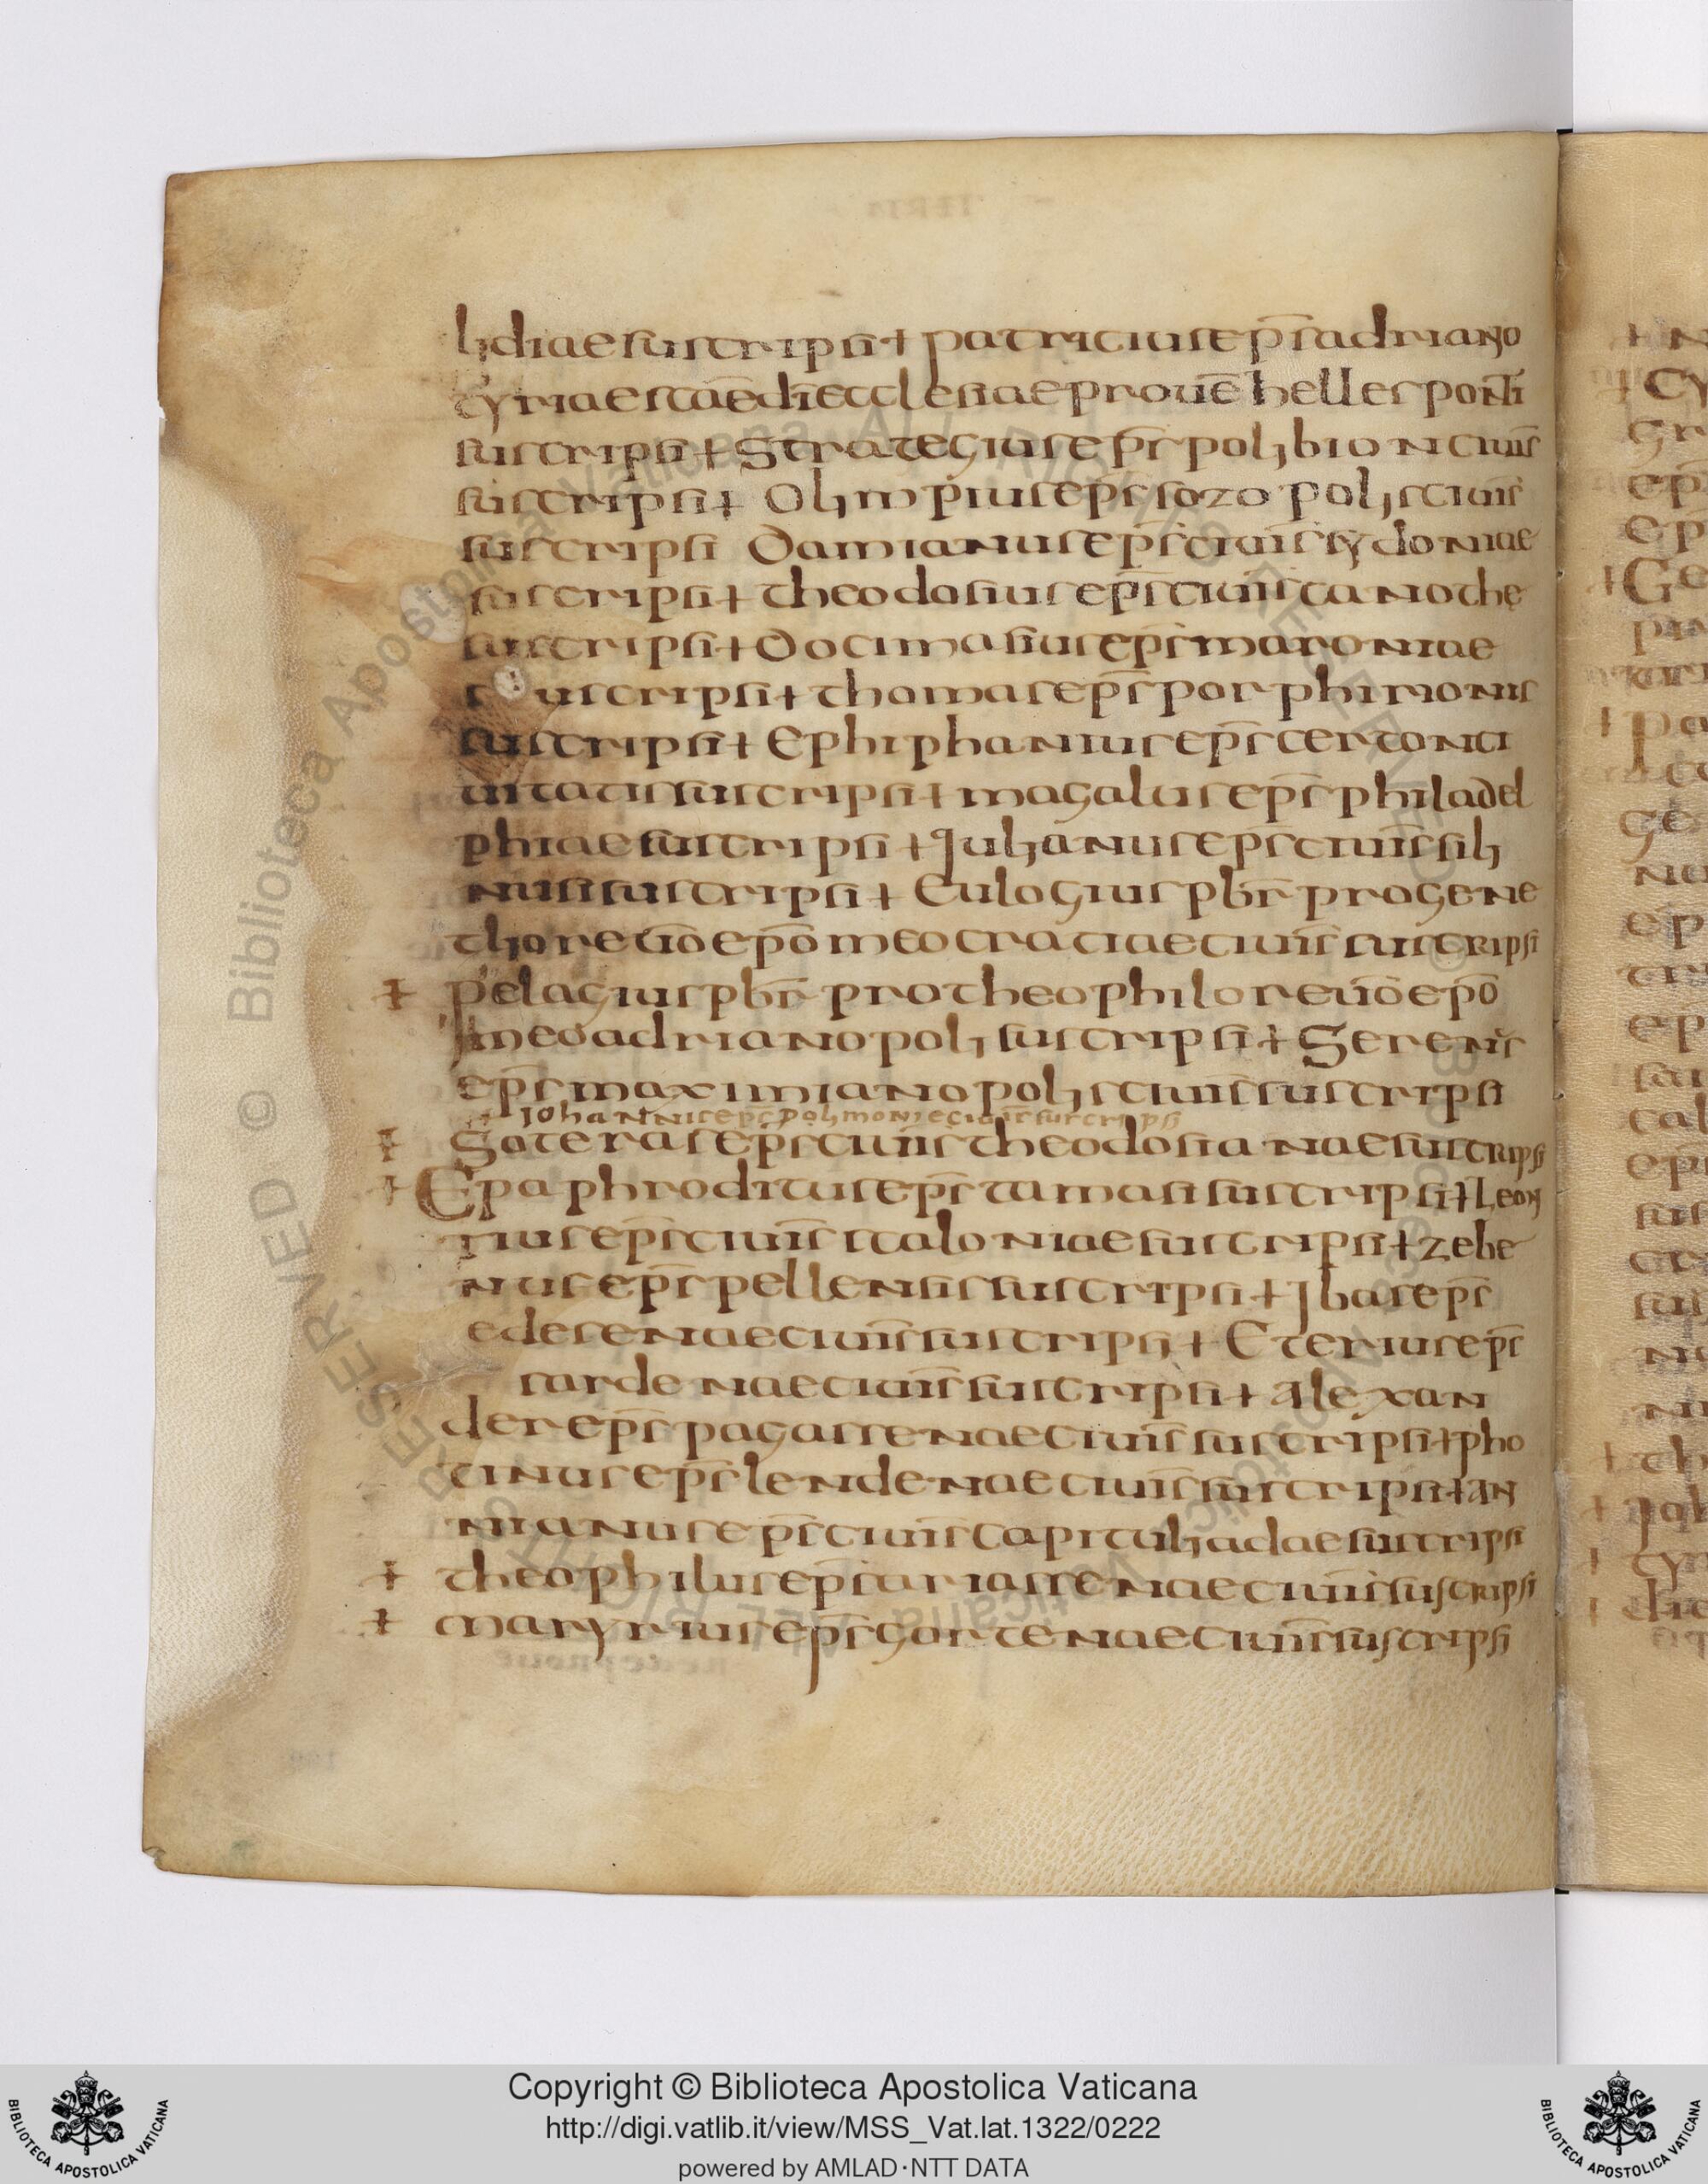 lydiae suscripsi + patricius ep̅s adriano
tyriae sc̅ae di̅ ecclesiae proue̅ hellesponti̅
suscripsi + Strategius ep̅s polybion ciui̅s
suscripsi + Olympius ep̅s sozopolis ciui̅s
suscripsi Damianus ep̅s ciui̅s sydoniae
suscripsi + theodosius ep̅s ciui̅s canothe
suscripsi + Docimasius ep̅s maroniae
suscripsi + thomas ep̅s porphirionis
suscripsi + Ephiphanius ep̅s certonci
uitatis suscripsi + magalus ep̅s philadel
phiae suscripsi + Julianus ep̅s ciui̅s sily
nusi suscripsi + Eulogius pb̅r pro gene
thlio reu̅o ep̅o meo cratiae ciui̅s suscripsi
+ pelagius pb̅r pro theophilo reu̅o ep̅o
meo adrianopoli suscripsi + Serenus
ep̅s maximianopolis ciui̅s suscripsi
+ Johannis ep̅s polymoniae ciui̅s suscripsi
+ Soteras ep̅s ciui̅s theodosianae suscripsi
+ Epaphroditus ep̅s tamasi suscripsi + Leon
tius ep̅s ciui̅s scaloniae suscripsi + zebe
nus ep̅s pellensis suscripsi + Jbas ep̅s
edesenae ciui̅s suscripsi + Eterius ep̅s
sardenae ciui̅s suscripsi + alexan
der ep̅s pagassenae ciui̅s suscripsi + pho
tinus ep̅s lendenae ciui̅s suscripsi + an
nianus ep̅s ciui̅s capituliadae suscripsi
+ theophilus ep̅s ariassenae ciui̅s suscripsi
+ maryrius ep̅s gortenae ciui̅s suscripsi
Copyright © Biblioteca Apostolica Vaticana
http://digi.vatlib.it/view/MSS_Vat.lat.1322/0222
powered by AMLAD·NTT DATA
BIBLIOTECA APOSTOLICA VATICANA
BIBLIOTECA APOSTOLICA VATICANA